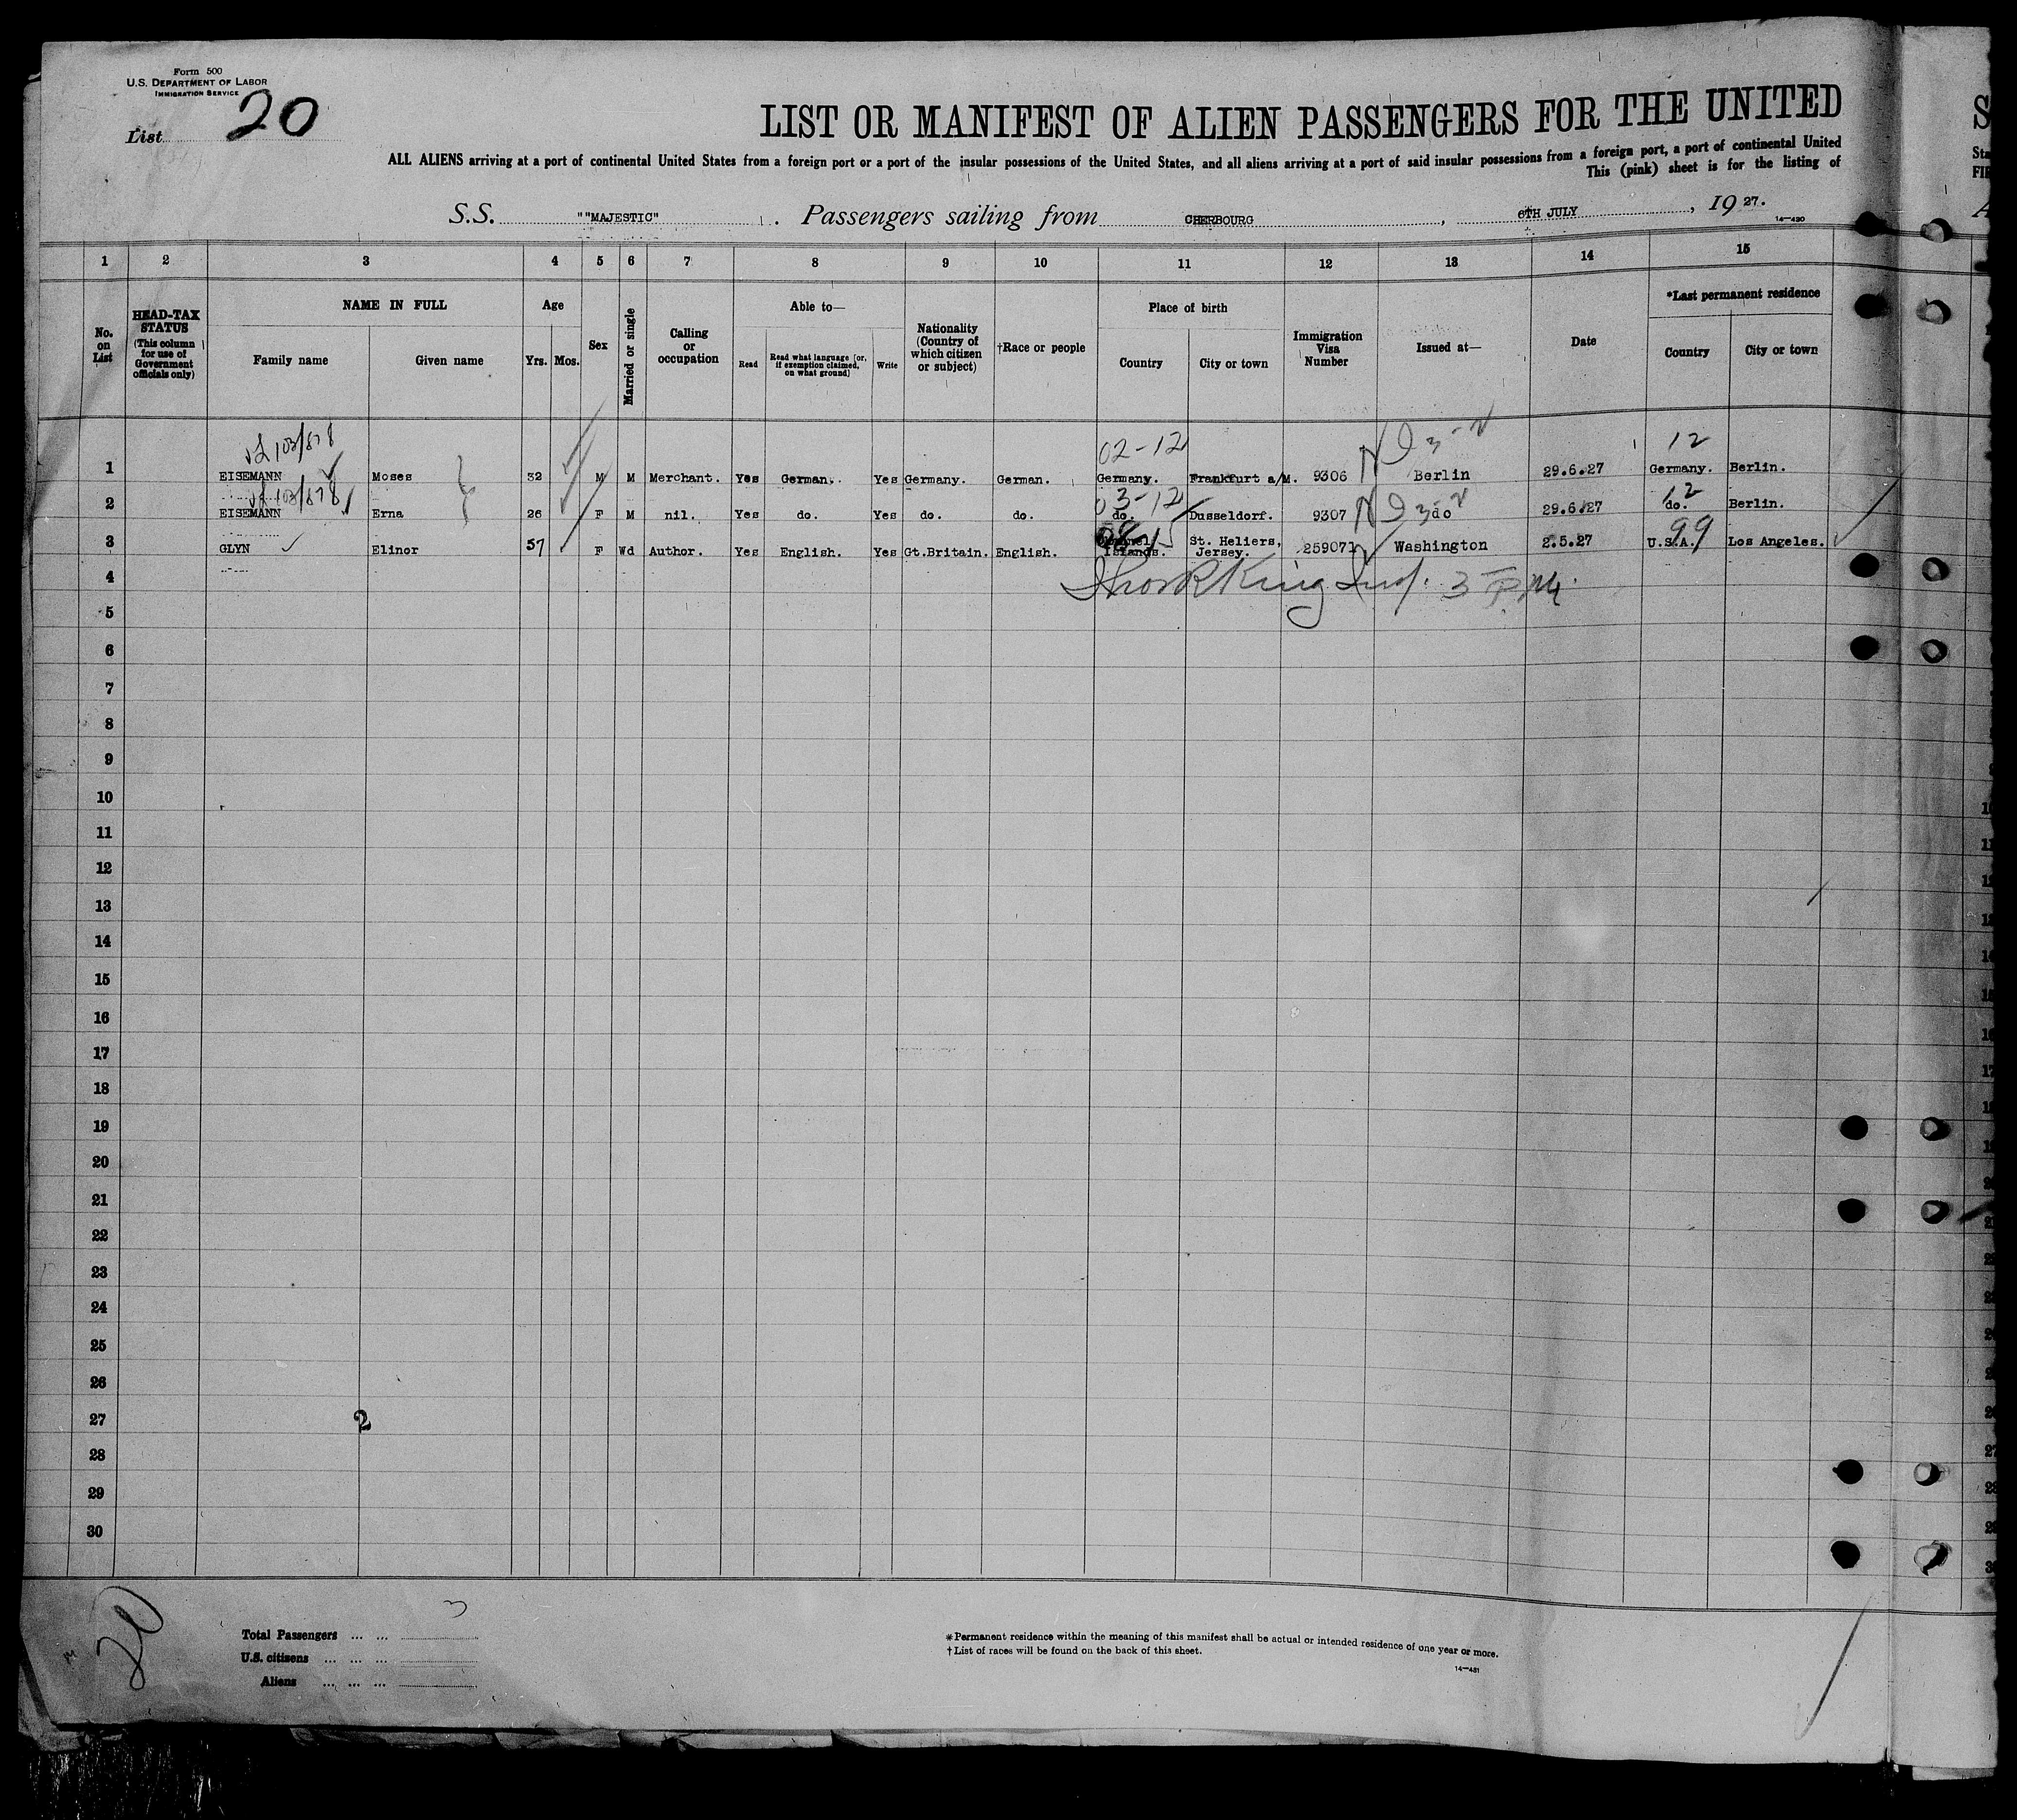 Form 500
U.S. DEPARTMENT OF LABOR
IMMIGRATION SERVICE
List 20
LIST OR MANIFEST OF ALIEN PASSENGERS FOR THE UNITED
ALL ALIENS arriving at a port of continental United States from a foreign port or a port of the insular possessions of the United States, and all aliens arriving at a port of said insular possessions from a foreign port, a port of continental United
This (pink) sheet is for the listing of
S.S. ""MAJESTIC" Passengers sailing from CHERBOURG, 6TH JULY, 1927.
14—430
1 2 3 4 5 6 7 8 9 10 11 12 13 14 15
No. on List
HEAD-TAX STATUS (This column for use of Government officials only)
NAME IN FULL
Family name Given name
Age
Yrs. Mos.
Sex
Married or single
Calling or occupation
Able to—
Read Read what language (or, if exemption claimed, on what ground) Write
Nationality (Country of which citizen or subject)
†Race or people
Place of birth
Country City or town
Immigration Visa Number
Issued at—
Date
*Last permanent residence
Country City or town
103/878 02-12 12
1 EISEMANN Moses 32 M M Merchant. Yes German. Yes Germany. German. Germany. Frankfurt a/M. 9306 Berlin 29.6.27 Germany. Berlin.
103/878 03-12 12
2 EISEMANN Erna 26 F M nil. Yes do. Yes do. do. do. Dusseldorf. 9307 do 29.6.27 do. Berlin.
99
3 GLYN Elinor 57 F Wd Author. Yes English. Yes Gt.Britain. English. Channel Islands. St. Heliers, Jersey. 259071 Washington 2.5.27 U.S.A. Los Angeles.
4 King 3 P.M.
5
6
7
8
9
10
11
12
13
14
15
16
17
18
19
20
21
22
23
24
25
26
27 2
28
29
30
20
3
Total Passengers ... ...
U.S. citizens ... ... ...
Aliens ... ... ...
*Permanent residence within the meaning of this manifest shall be actual or intended residence of one year or more.
†List of races will be found on the back of this sheet.
14—431